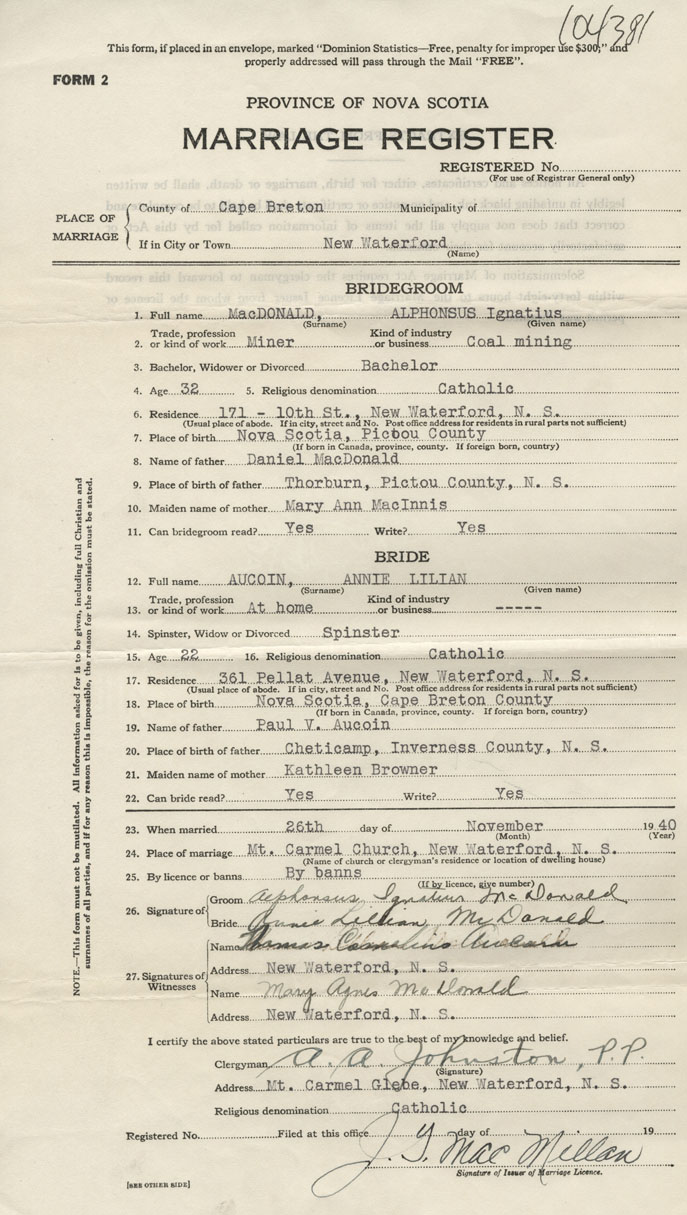 104381
This form, if placed in an envelope, marked "Dominion Statistics—Free, penalty for improper use $300;" and
properly addressed will pass through the Mail "FREE".
FORM 2
PROVINCE OF NOVA SCOTIA
MARRIAGE REGISTER
REGISTERED No.
(For use of Registrar General only)
PLACE OF MARRIAGE
County of Cape Breton Municipality of
If in City or Town New Waterford
(Name)
BRIDEGROOM
1. Full name MacDONALD, ALPHONSUS Ignatius
(Surname) (Given name)
Trade, profession Kind of industry
2. or kind of work Miner or business Coal mining
3. Bachelor, Widower or Divorced Bachelor
4. Age 32 5. Religious denomination Catholic
6. Residence 171 - 10th St., New Waterford, N. S.
(Usual place of abode. If in city, street and No. Post office address for residents in rural parts not sufficient)
7. Place of birth Nova Scotia, Pictou County
(If born in Canada, province, county. If foreign born, country)
8. Name of father Daniel MacDonald
9. Place of birth of father Thorburn, Pictou County, N. S.
10. Maiden name of mother Mary Ann MacInnis
11. Can bridegroom read? Yes Write? Yes
BRIDE
12. Full name AUCOIN, ANNIE LILIAN
(Surname) (Given name)
Trade, profession Kind of industry
13. or kind of work At home or business -----
14. Spinster, Widow or Divorced Spinster
15. Age 22 16. Religious denomination Catholic
17. Residence 361 Pellat Avenue, New Waterford, N. S.
(Usual place of abode. If in city, street and No. Post office address for residents in rural parts not sufficient)
18. Place of birth Nova Scotia, Cape Breton County
(If born in Canada, province, county. If foreign born, country)
19. Name of father Paul V. Aucoin
20. Place of birth of father Cheticamp, Inverness County, N. S.
21. Maiden name of mother Kathleen Browner
22. Can bride read? Yes Write? Yes
23. When married 26th day of November 1940
(Month) (Year)
24. Place of marriage Mt. Carmel Church, New Waterford, N. S.
(Name of church or clergyman's residence or location of dwelling house)
25. By licence or banns By banns
(If by licence, give number)
26. Signature of
Groom Alphonsus Ignatius McDonald
Bride Annie Lillian McDonald
27. Signatures of Witnesses
Name Thomas Cornelius Aucoin
Address New Waterford, N. S.
Name Mary Agnes McDonald
Address New Waterford, N. S.
I certify the above stated particulars are true to the best of my knowledge and belief.
Clergyman A. A. Johnston, P.P.
(Signature)
Address Mt. Carmel Glebe, New Waterford, N. S.
Religious denomination Catholic
Registered No. Filed at this office day of 19
J. G. MacMillan
Signature of Issuer of Marriage Licence.
[SEE OTHER SIDE]
NOTE.—This form must not be mutilated. All information asked for is to be given, including full Christian and
surnames of all parties, and if for any reason this is impossible, the reason for the omission must be stated.